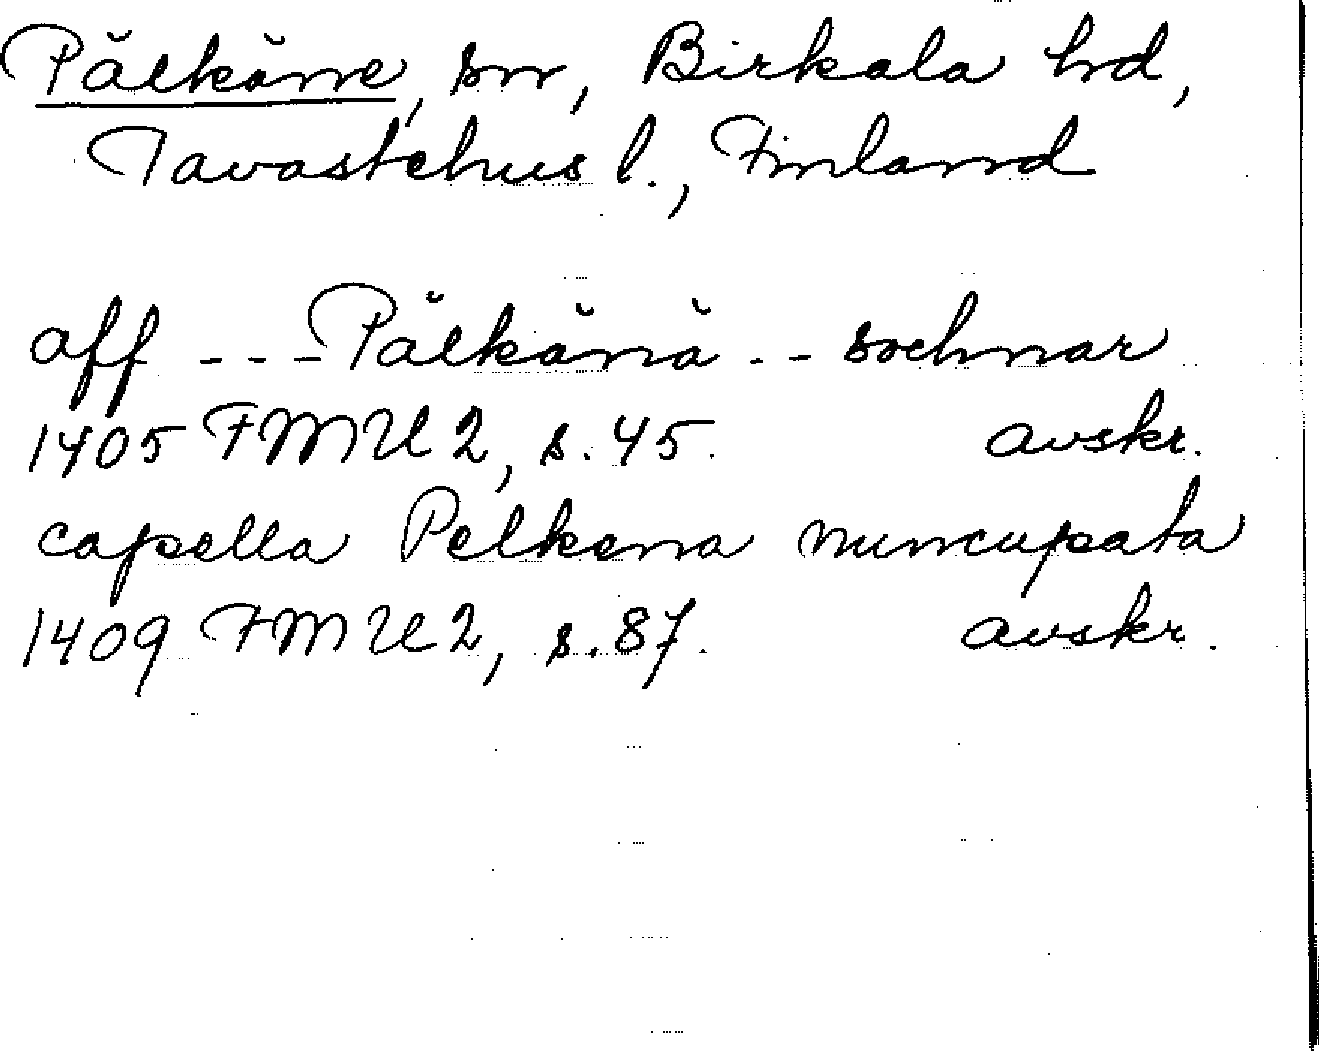 Pälkäne, sn, Birkala hd,
Tavastehus l., Finland
aff - - - Pälkänä - - sochnar
1405 FMU 2, s. 45. avskr.
capella Pelkena nuncupata
1409 FMU 2, s. 87. avskr.